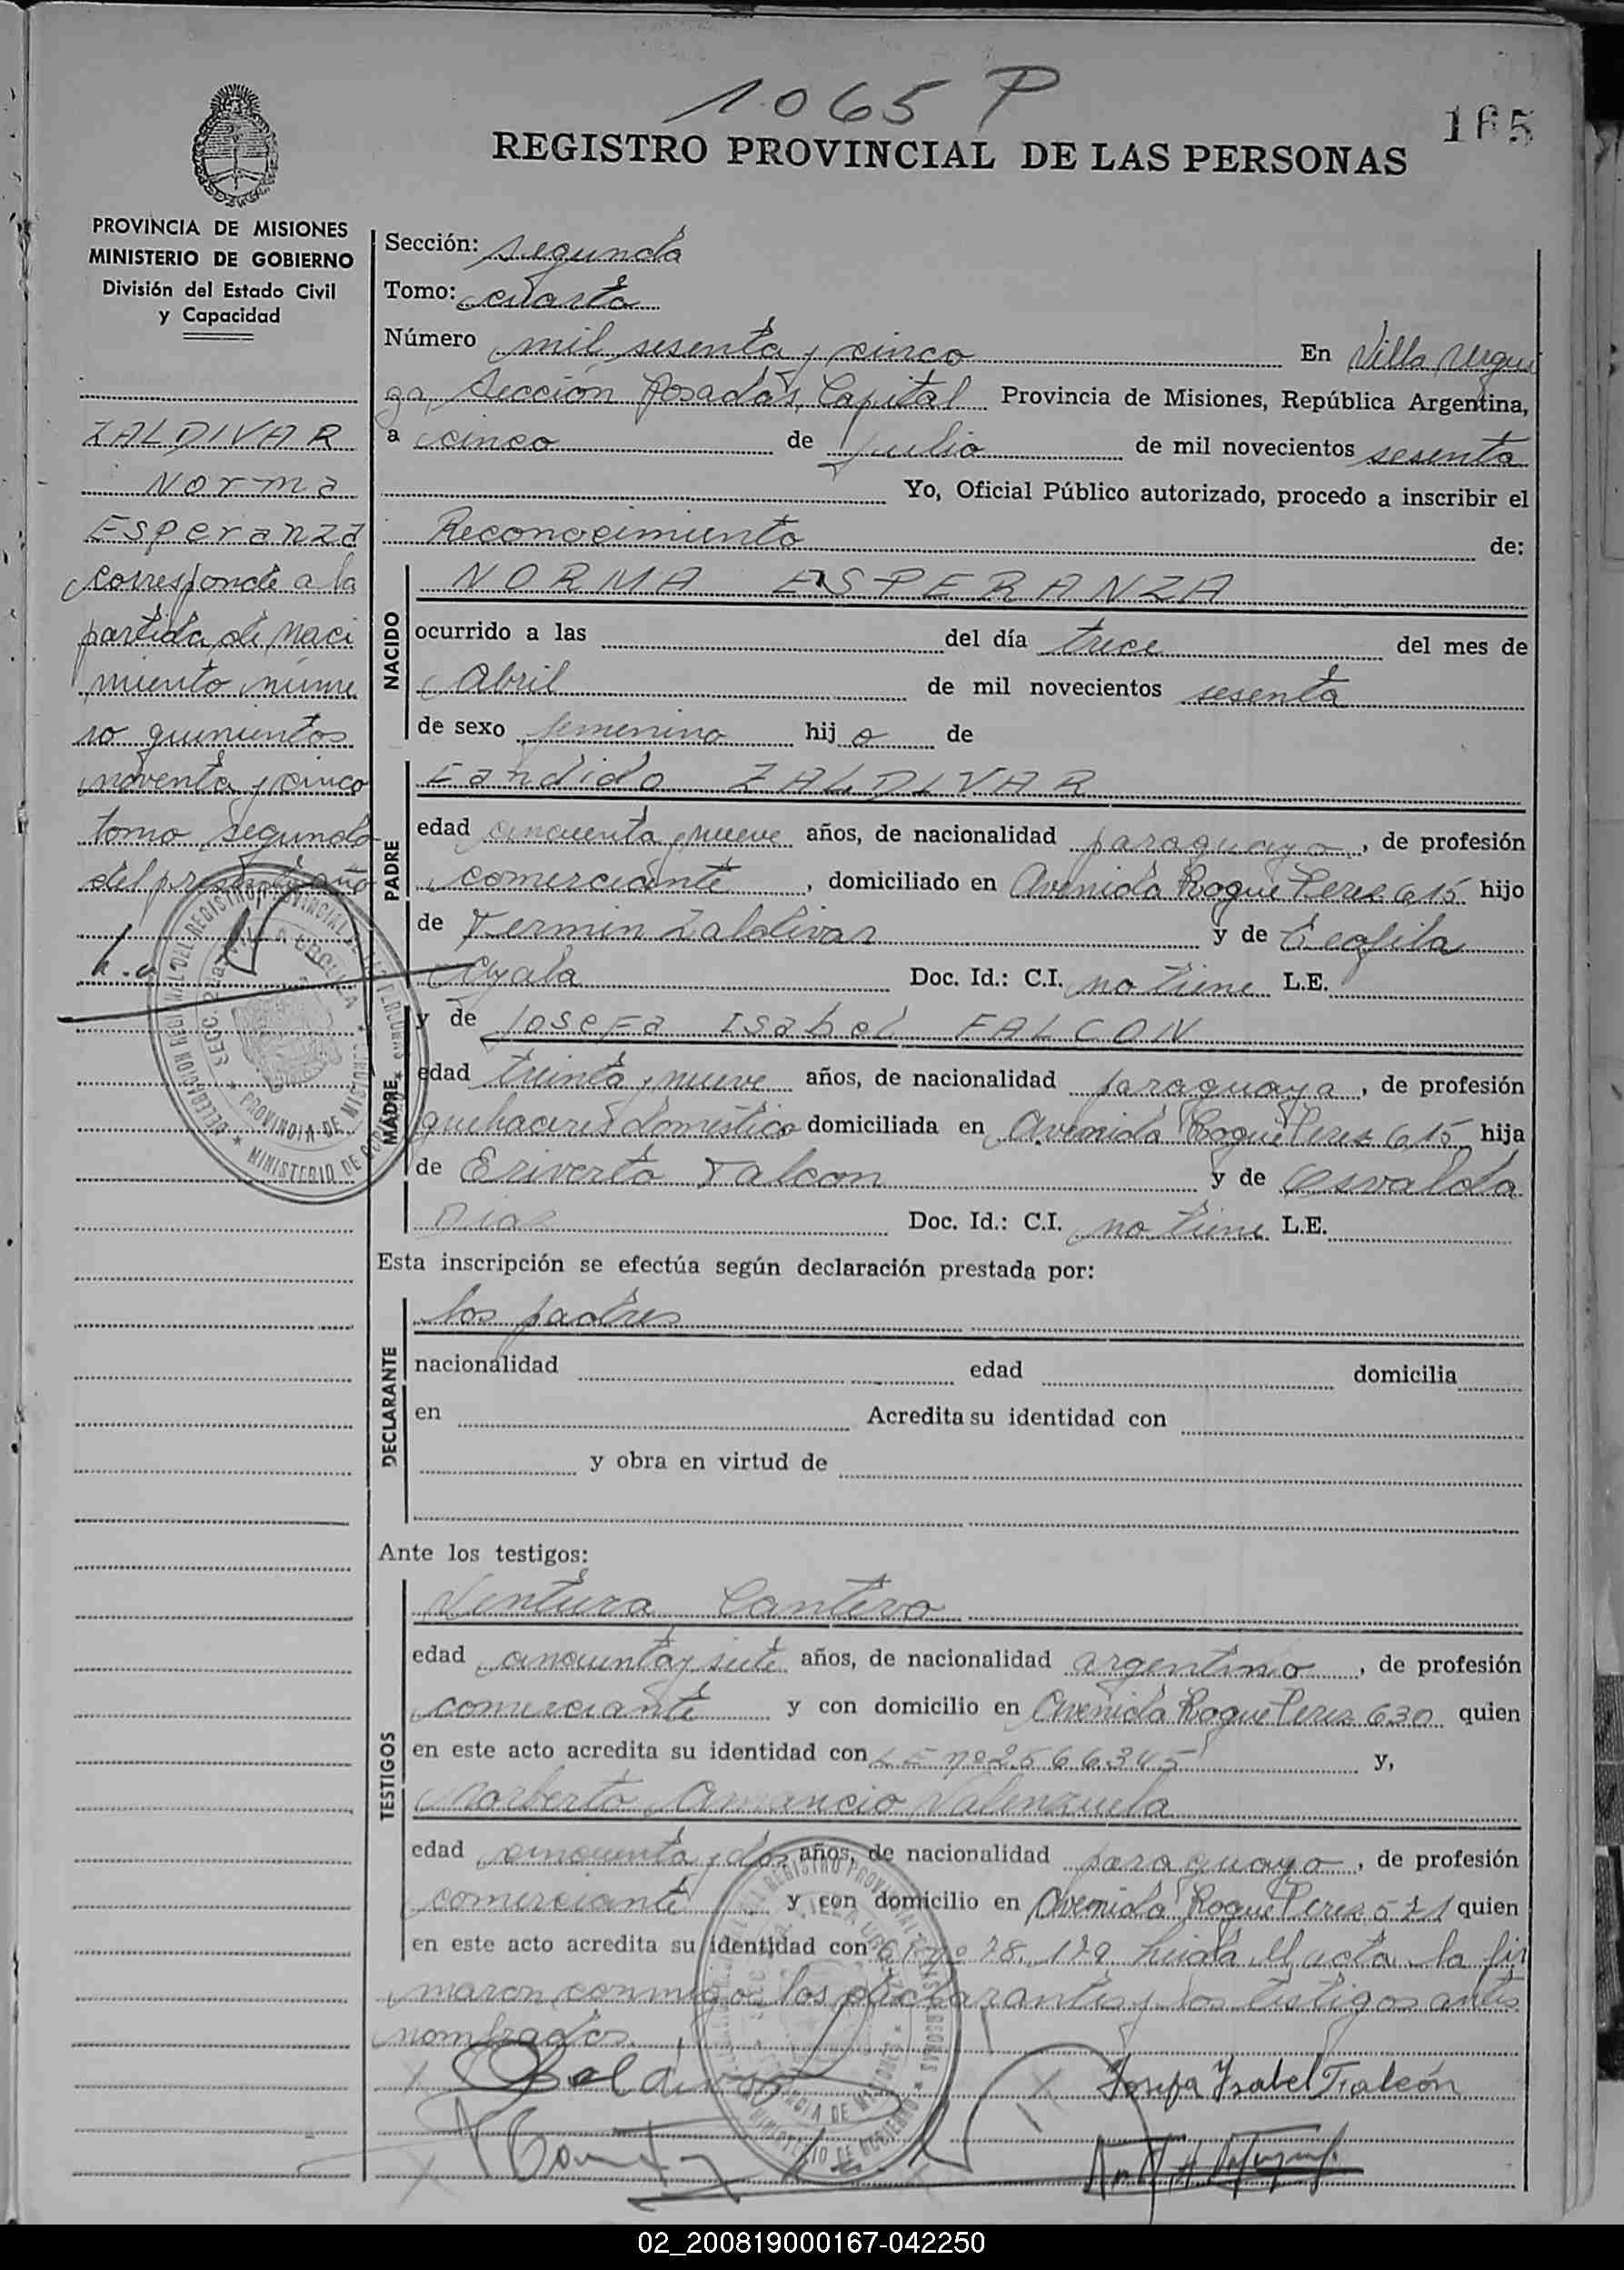 1065 P
165
REGISTRO PROVINCIAL DE LAS PERSONAS
PROVINCIA DE MISIONES
MINISTERIO DE GOBIERNO
División del Estado Civil
y Capacidad
ZALDIVAR
Norma
Esperanza
corresponde a la
partida de naci
miento núme
ro quinientos
noventa y cinco
tomo segundo
del presente año
Sección: segunda
Tomo: cuarto
Número mil sesenta y cinco En Villa Urqui
za, Sección Posadas, Capital Provincia de Misiones, República Argentina,
a cinco de Julio de mil novecientos sesenta
Yo, Oficial Público autorizado, procedo a inscribir el
Reconocimiento de:
NACIDO
NORMA ESPERANZA
ocurrido a las del día trece del mes de
Abril de mil novecientos sesenta
de sexo femenino hij a de
PADRE
Candido ZALDIVAR
edad cincuenta y nueve años, de nacionalidad paraguayo, de profesión
comerciante, domiciliado en Avenida Roque Perez 615 hijo
de Fermin Zaldivar y de Teofila
Ayala Doc. Id.: C.I. no tiene L.E.
MADRE
y de Josefa Isabel FALCON
edad treinta y nueve años, de nacionalidad paraguaya, de profesión
quehaceres domestico domiciliada en Avenida Roque Perez 615 hija
de Eriverto Falcon y de Osvalda
Dias Doc. Id.: C.I. no tiene L.E.
Esta inscripción se efectúa según declaración prestada por:
DECLARANTE
los padres
nacionalidad edad domicilia
en Acredita su identidad con
y obra en virtud de
Ante los testigos:
TESTIGOS
Ventura Cantero
edad cincuenta y siete años, de nacionalidad argentino, de profesión
comerciante y con domicilio en Avenida Roque Perez 630 quien
en este acto acredita su identidad con L E nº 2.566.345 y,
Norberto Amancio Valenzuela
edad cincuenta y dos años, de nacionalidad paraguayo, de profesión
comerciante y con domicilio en Avenida Roque Perez 521 quien
en este acto acredita su identidad con nº 78.129 leida el acta la fir
maron conmigo los declarantes y los testigos antes
nombrados.
Josefa Isabel Falcón
02_200819000167-042250